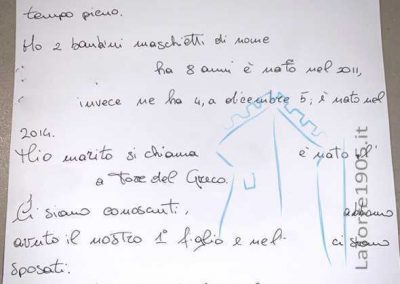 tempo pieno.
Ho 2 bambini maschietti di nome
ha 8 anni è nato nel 2011,
invece ne ha 4, a dicembre 5, è nato nel
2014.
Mio marito si chiama è nato il
a Torre del Greco.
Ci siamo conosciuti, abbiamo
avuto il nostro 1° figlio e nel ci siamo
sposati.
LaTorre1905.it